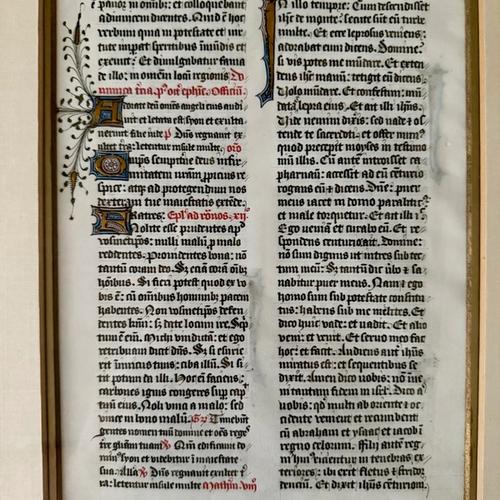 panos in omībꝫ: et colloquebant
ad inuicem dicentes. Quid ē hoc
verbum quia in potestate et ir
tute impat spiritibus īmūdis et
exeunt. Et diuulgabatur fama
de illo: in omēm locū regionis Do
minica
Adorate deū omēs angeli eius audi
uit et letata est syon et exulta
uerunt filie iude Dn̄s regnauit ex
letent̄ insule multe. oro
Omps sempiterne deus infir
mitatem nr̄am ppicius re
spice: atqꝫ ad protegendum nos
dexteram tue maiestatis extēde.
Fratres. Epl̄a ad ro͞nos. xij
Nolite esse prudentes apᵈ
vosmetipos: nulli malū p malo
reddentes. prouidentes bona: nō
tantū coram deo. Sꝫ eciā corā oībꝫ
hōibus. Si fieri potest quod ex vo
bis ē: cū omībus hominibꝫ pacem
habentes. Non vosmetipos defen
dentes kmi: sꝫ date locum ire. Sc̄ptum
tum ē enī. Michi vindictā: et ego
retribuam dicit dn̄s. Sꝫ si esurie
rit inimicus tuus: ciba illū. Si si
tit potum da illi. Hoc enī faciens:
carbones ignis congeres sup cap
tuū eius. Noli vinci a malo: sed
vince in bono malū. Timebūt
gentes nomen tuū domine et om̄s reges
tre gloriam tuam Qm̄ edificauit do
min9 syon et videbitur ī maiestate
sua. Alla Dn̄s regnauit exultet t
ra: letentur insule multe
In illo tempore: Cum descendisset
ih̄s de monte: secute sūt eū turbe
multe. Et ecce leprosus veniens:
adorabat eum dicens. Domine:
si vis potes me mūdare. Et exten
dens ih̄s manū: tetigit eū dicens.
Volo mūdare. Et confestim: mū
data ē lepra eius. Et ait illi ih̄us.
Vide nemini dixis: sed vade os
tende te sacerdoti et offer mun9
quod precepit moyses in testimo
niū illis. Cū autē introisset ca
pharnaū: accessit ad eū centurio
rogans eū et dicens. Dn̄e: puer
meus iacet in domo paraliticꝰ
et male torquetur. Et ait illi ih̄s
Ego veniā et curabo eū. Et re
spondens centurio ait. Domine:
nō sum dignus ut intres sub tec
tum meū: Sꝫ tantū dic ūbo et sa
nabitur puer meus. Nam et ego
homo sum sub potestate constitu
tus: habens sub me milites. Et
dico huic vade: et vadit. Et alio
veni: et venit. Et seruo meo fac
hoc: et facit. Audiens autē ih̄us
miratus est: et sequentibus se
dixit. Amen dico vobis: nō inue
ni tantam fidem in isrl̄. Dico aūt
vobis: qd multi ab oriente et oc
cidente venient et recumbent
cū abraham et ysaac et iacob in
regno celorum. Filij autē reg
ni hui9 eicientur in tenebras ex
teriores: ibi erit fletus et stridor
dentiū. Et dixit ih̄us centurioni.